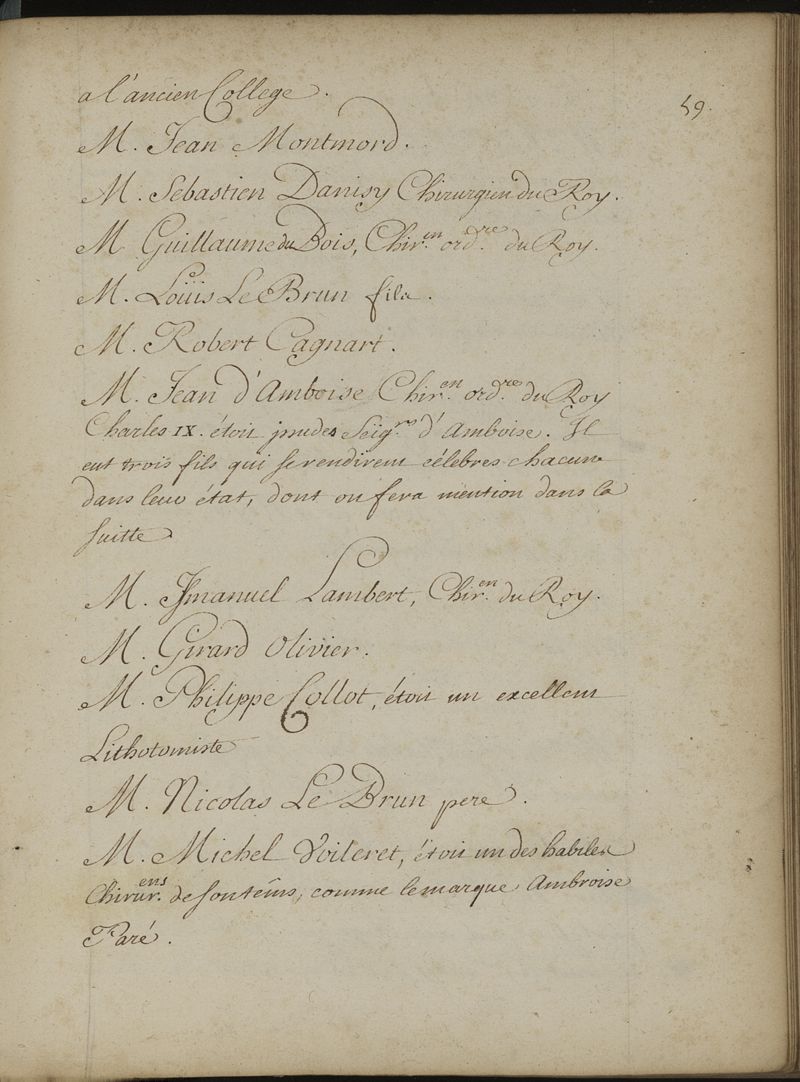 a l'ancien College.
59.
M. Jean Montmord.
M. Sebastien Danisy Chirurgien du Roy.
M Guillaume du Bois, Chir.en ord.re du Roy.
M. Loüis Le Brun fils.
M. Robert Cagnart.
M. Jean d'Amboise Chir.en ord.re du Roy
Charles IX. étoit des Seig.rs d'Amboise. Il
eut trois fils qui se rendirent célebres chacun
dans leur état, dont on fera mention dans la
suitte
M. Lambert, Chir.en du Roy.
M. Girard Olivier.
M. Philippe Collot, étoit un excellent
Lithotomiste
M. Nicolas Le Brun pere.
M. Michel Voileret, étoit un des habiles
Chirur.ens de son tems, comme le marque Ambroise
Paré.